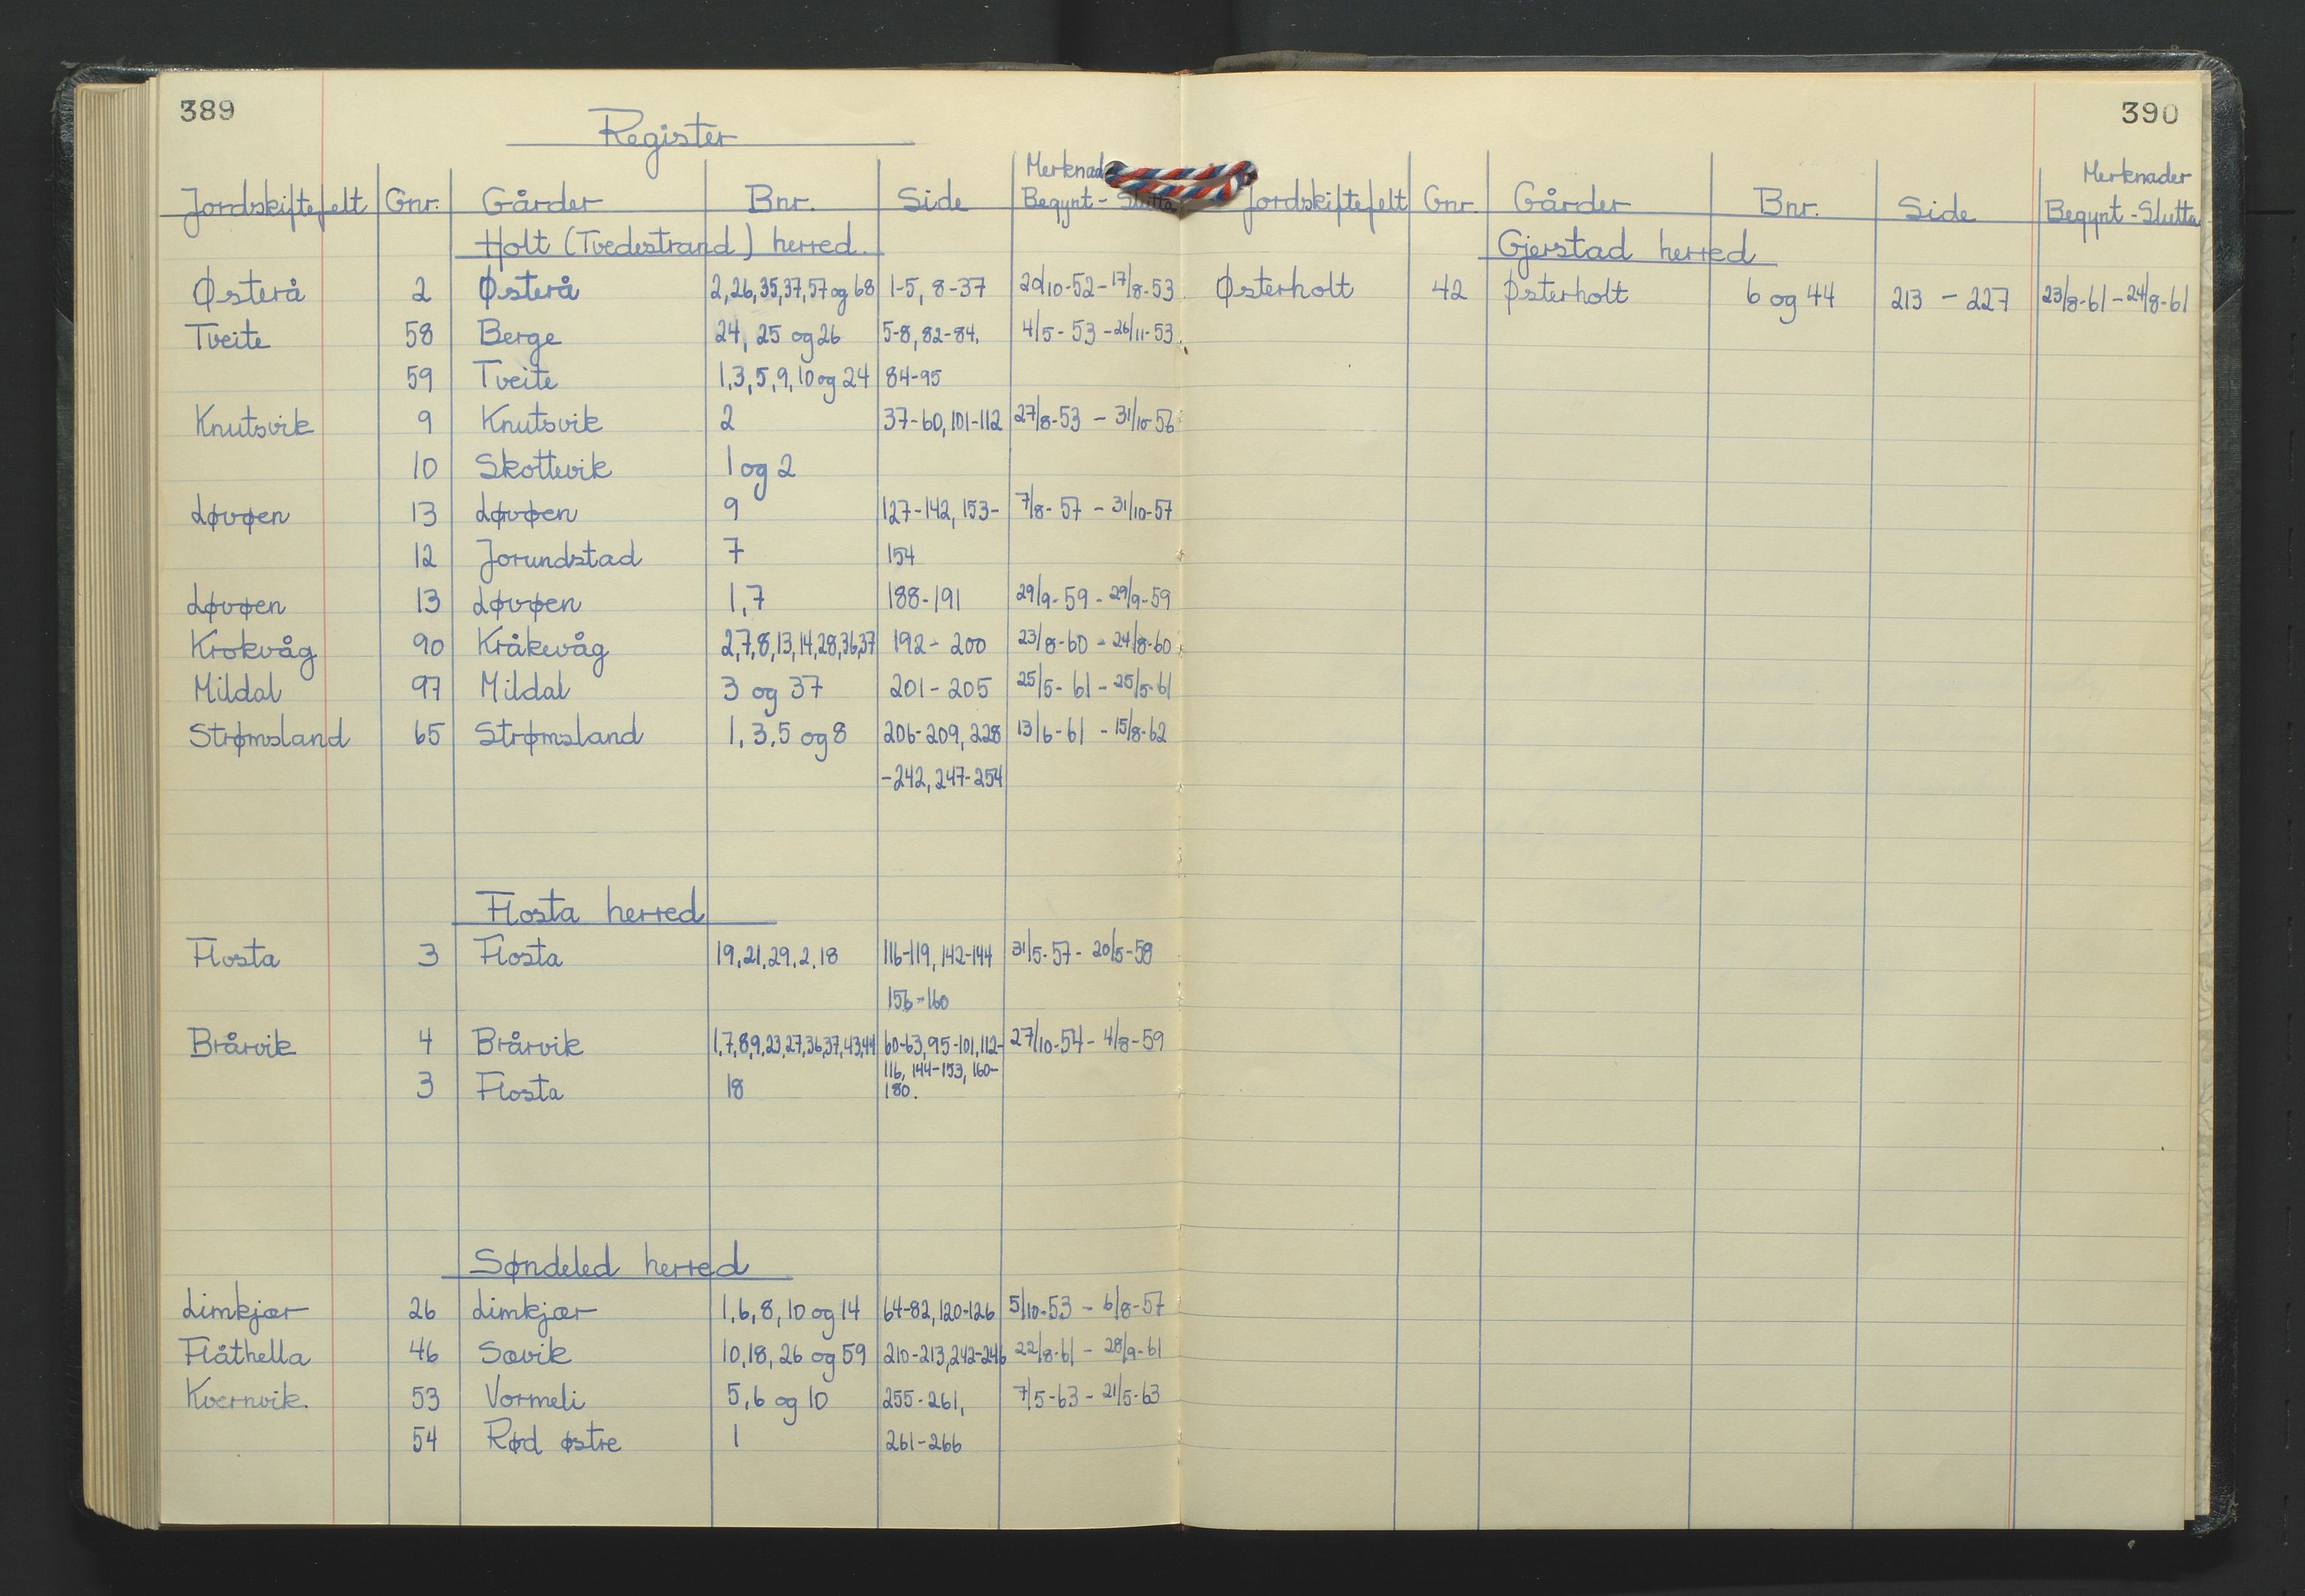 389
Register
Jordskiftefelt Gnr. Gårder Bnr. Side Merknad Begynt - Slutta
Holt (Tvedestrand) herred.
Østerå 2 Østerå 2,26,35,37,57 og 68 1-5, 8-37 20/10-52 - 17/8-53
Tveite 58 Berge 24, 25 og 26 5-8, 82-84. 4/5-53 - 26/11-53.
59 Tveite 1,3,5,9,10 og 24 84-95
Knutsvik 9 Knutsvik 2 37-60, 101-112 27/8-53 - 31/10-56
10 Skottevik 1 og 2
Løvøen 13 Løvøen 9 127-142, 153- 7/8-57 - 31/10-57
12 Jorundstad 7 154
Løvøen 13 Løvøen 1,7 188-191 29/9-59 - 29/9-59
Krokvåg 90 Kråkevåg 2,7,8,13,14,28,36,37 192 - 200 23/8-60 - 24/8-60
Mildal 97 Mildal 3 og 37 201 - 205 25/5-61 - 25/5-61
Strømsland 65 Strømsland 1, 3, 5 og 8 206-209, 228 13/6-61 - 15/8-62
-242, 247-254
Flosta herred
Flosta 3 Flosta 19.21.29.2.18 116-119, 142-144 31/5-57 - 20/5-58
156-160
Brårvik 4 Brårvik 1,7,8,9,23,27,36,37,43,44 60-63, 95-101, 112- 27/10-54 - 4/8-59
116, 144-153, 160-
3 Flosta 18 180.
Søndeled herred
Limkjær 26 Limkjær 1,6,8,10 og 14 64-82, 120-126 5/10-53 - 6/8-57
Flåthella 46 Sævik 10,18, 26 og 59 210-213, 242-246 22/8-61 - 28/9-61
Kvernvik. 53 Vormeli 5,6 og 10 255-261, 7/5-63 - 21/5-63
54 Rød østre 1 261-266
390
Jordskiftefelt Gnr. Gårder Bnr. Side Merknader Begynt - Slutta
Gjerstad herred
Østerholt 42 Østerholt 6 og 44 213 - 227 23/8-61 - 24/8-61